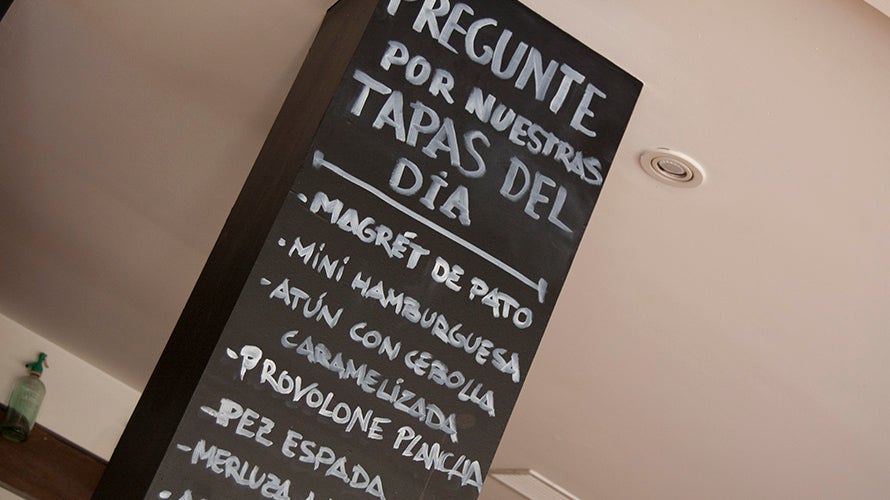 PREGUNTE
POR NUESTRAS
TAPAS DEL
DÍA
- MAGRÉT DE PATO
- MINI HAMBURGUESA
- ATÚN CON CEBOLLA
CARAMELIZADA
- PROVOLONE PLANCHA
- PEZ ESPADA
- MERLUZA